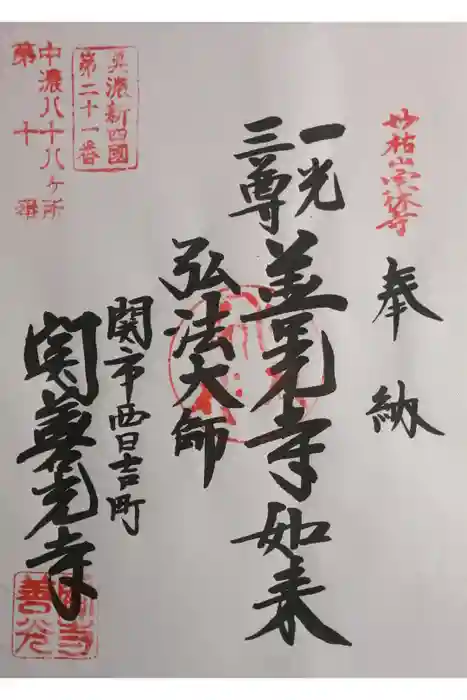 妙祐山宗休寺
奉納
一光
三尊
善光寺如来
弘法大師
美濃新四國
第二十一番
中濃八十八ヶ所
第十番
関市西日吉町
関善光寺